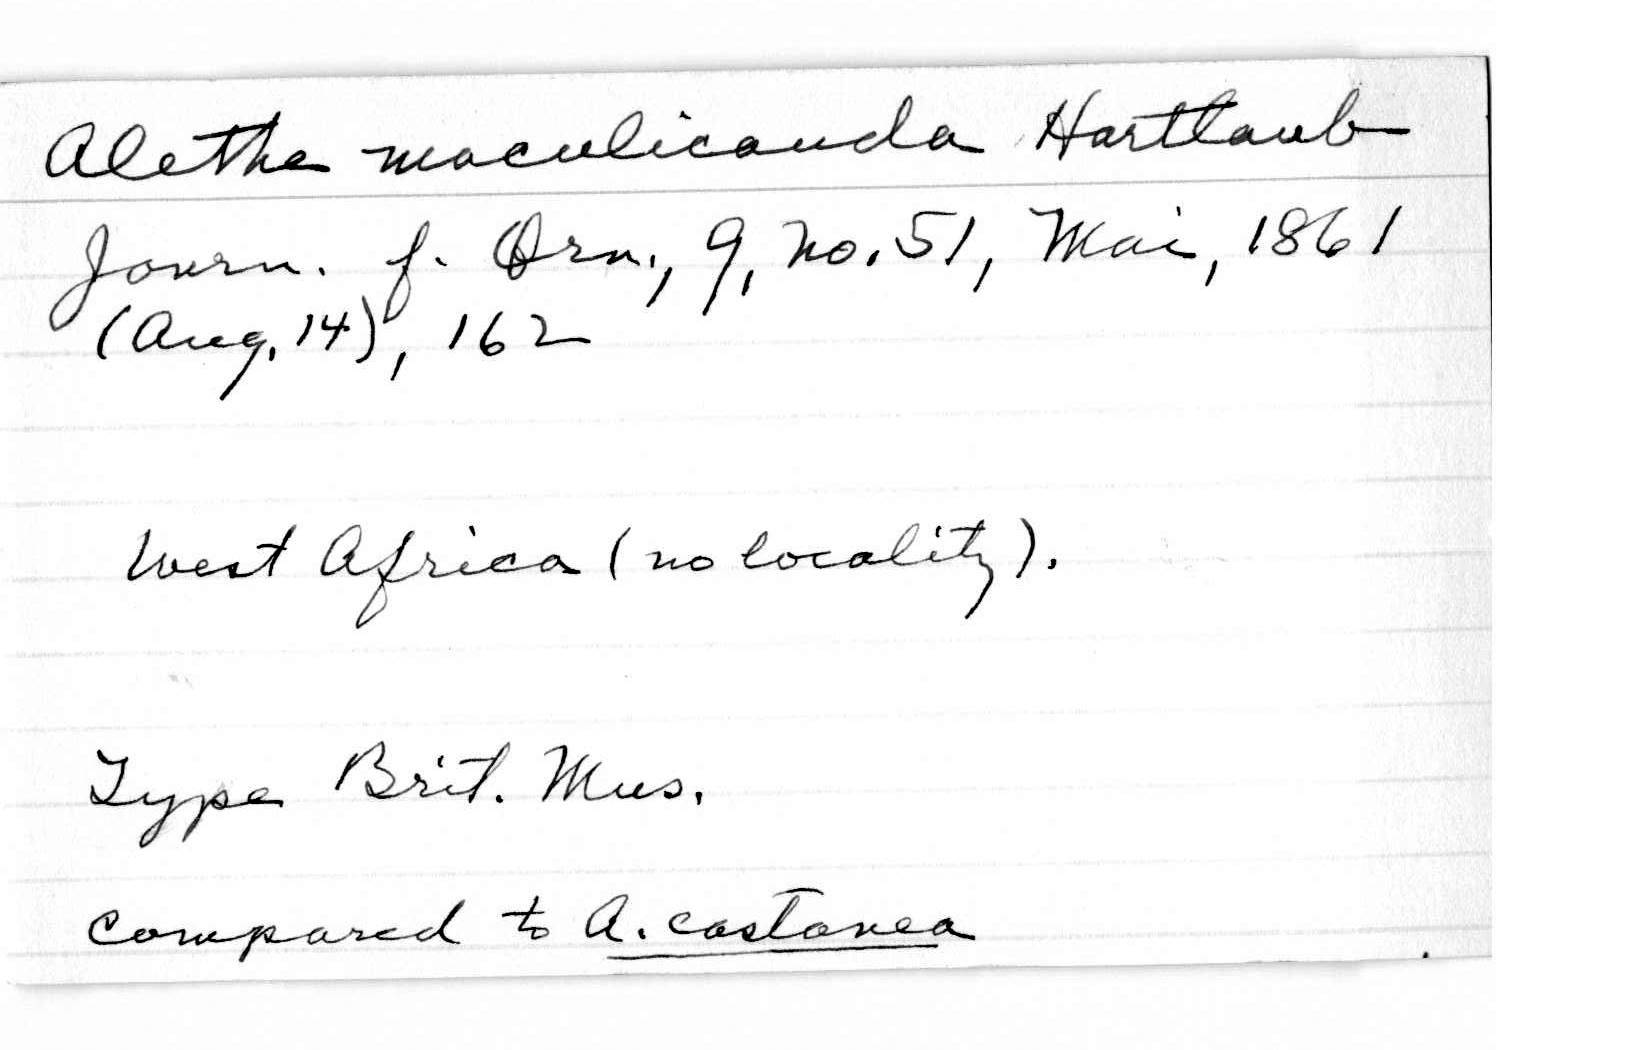 Alethe maculicauda Hartlaub
Journ. f. Orn., 9, no. 51, Mai, 1861
(Aug. 14), 162
West Africa (no locality).
Type Brit. Mus.
Compared to A. castanea